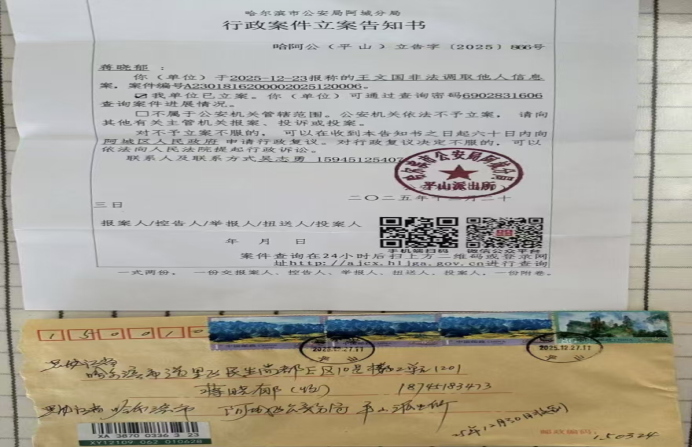 哈尔滨市公安局阿城分局
行政案件立案告知书
哈阿公（平山）立告字〔2025〕866号
蒋晓郁：
你（单位）于2025-12-23报称的王文国非法调取他人信息
案，案件编号A2301816200002025120006。
☑我单位已立案。你（单位）可通过查询密码6902831606
查询案件进展情况。
□不属于公安机关管辖范围。公安机关依法不予立案，请向
其他有关主管机关报案、投诉或投案。
对不予立案不服的，可以在收到本告知书之日起六十日内向
阿城区人民政府申请行政复议。对行政复议决定不服的，可以
依法向人民法院提起行政诉讼。
联系人及联系方式吴志勇 15945125407
哈尔滨市公安局阿城分局
平山派出所
二〇二五年十二月二十
三日
报案人/控告人/举报人/扭送人/投案人
年 月 日
手机端扫码 微信公众平台
案件查询在24小时后扫上方二维码或登录网
址http://ajcx.hljga.gov.cn进行查询
一式两份，一份交报案人、控告人、举报人、扭送人、投案人，一份附卷。
150010
2025.12.27.11
2025.12.27.11
黑龙江省
哈尔滨市道里区民生尚都E区10号楼2单元1201
蒋晓郁（收） 18745183473
黑龙江省哈尔滨市 阿城公安分局平山派出所
XA 3870 0336 3 23
XY12109 062 010628
25年12月30日
邮政编码
150324